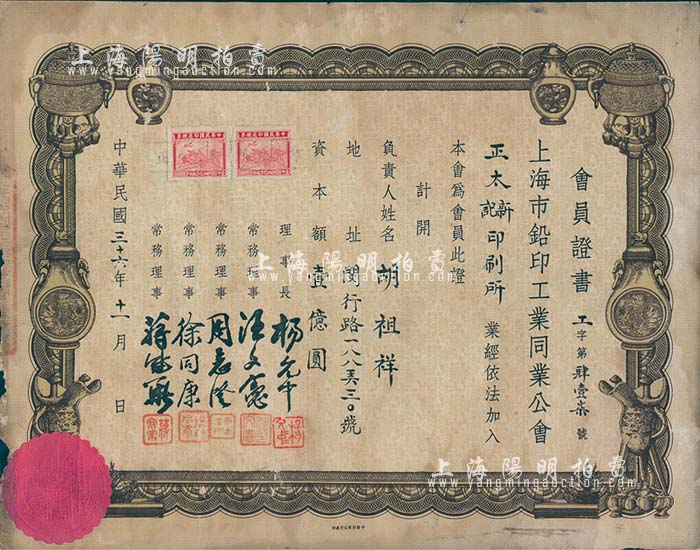 會員證書 工字第肆壹柒號
上海市鉛印工業同業公會
正太新記印刷所 業經依法加入
本會為會員此證
計開
負責人姓名 胡祖祥
地址 閔行路一八八弄三〇號
資本額 壹億圓
理事長 楊允中
常務理事 汪文憲
常務理事 周志澄
常務理事 徐同康
常務理事
中華民國三十六年十一月 日
上海陽明拍賣
www.yangmingauction.com
上海陽明拍賣
www.yangmingauction.com
上海陽明拍賣
www.yangmingauction.com